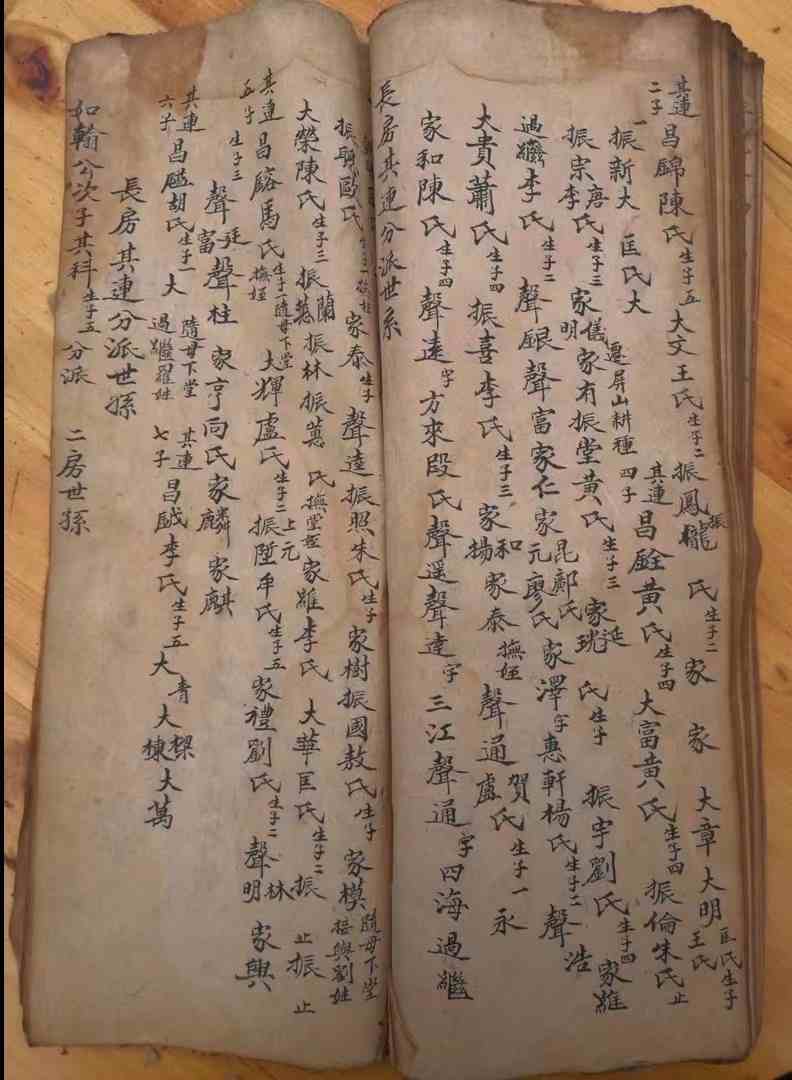 其連二子昌錦陳氏生子五大文王氏生子二振鳳振櫳氏生子二家家大章大明匡氏生子王氏
振新大匡氏大遷屏山耕種其連四子昌銓黃氏生子四大富黃氏生子四振倫朱氏止
振宗唐氏李氏生子三家儀明家有振堂黃氏生子三家珖延氏生子振宇劉氏生子四家雍
過繼李氏生子二聲銀聲富家仁家元昆廖氏鄺氏家澤字惠軒楊氏生子二聲浩
大貴蕭氏生子四振喜李氏生子三家揚和家泰撫姪聲通盧賀氏生子一永
家和陳氏生子四聲遠字方來段氏聲遥聲達字三江聲通字四海過繼
長房其連分派世系
振聰歐氏家泰生子聲遠振照朱氏生子家樹振國敖氏生子家模隨母下堂接與劉姓
大榮陳氏生子三振蘭蕙振林振蕙氏撫堂姪家雍李氏大華匡氏生子二振止振止
其連五子昌鎔馬氏生子一隨母下堂撫姪大輝盧氏生子二振陞上元牟氏生子五家禮劉氏生子二聲明林家興
生子三聲富廷聲柱家亨向氏家麟家麒
其連六子昌鎰胡氏生子一大隨母下堂過繼羅姓其連七子昌鉞李氏生子五大青大棟樑大萬
長房其連分派世孫
如翰公次子其科生子五分派二房世孫